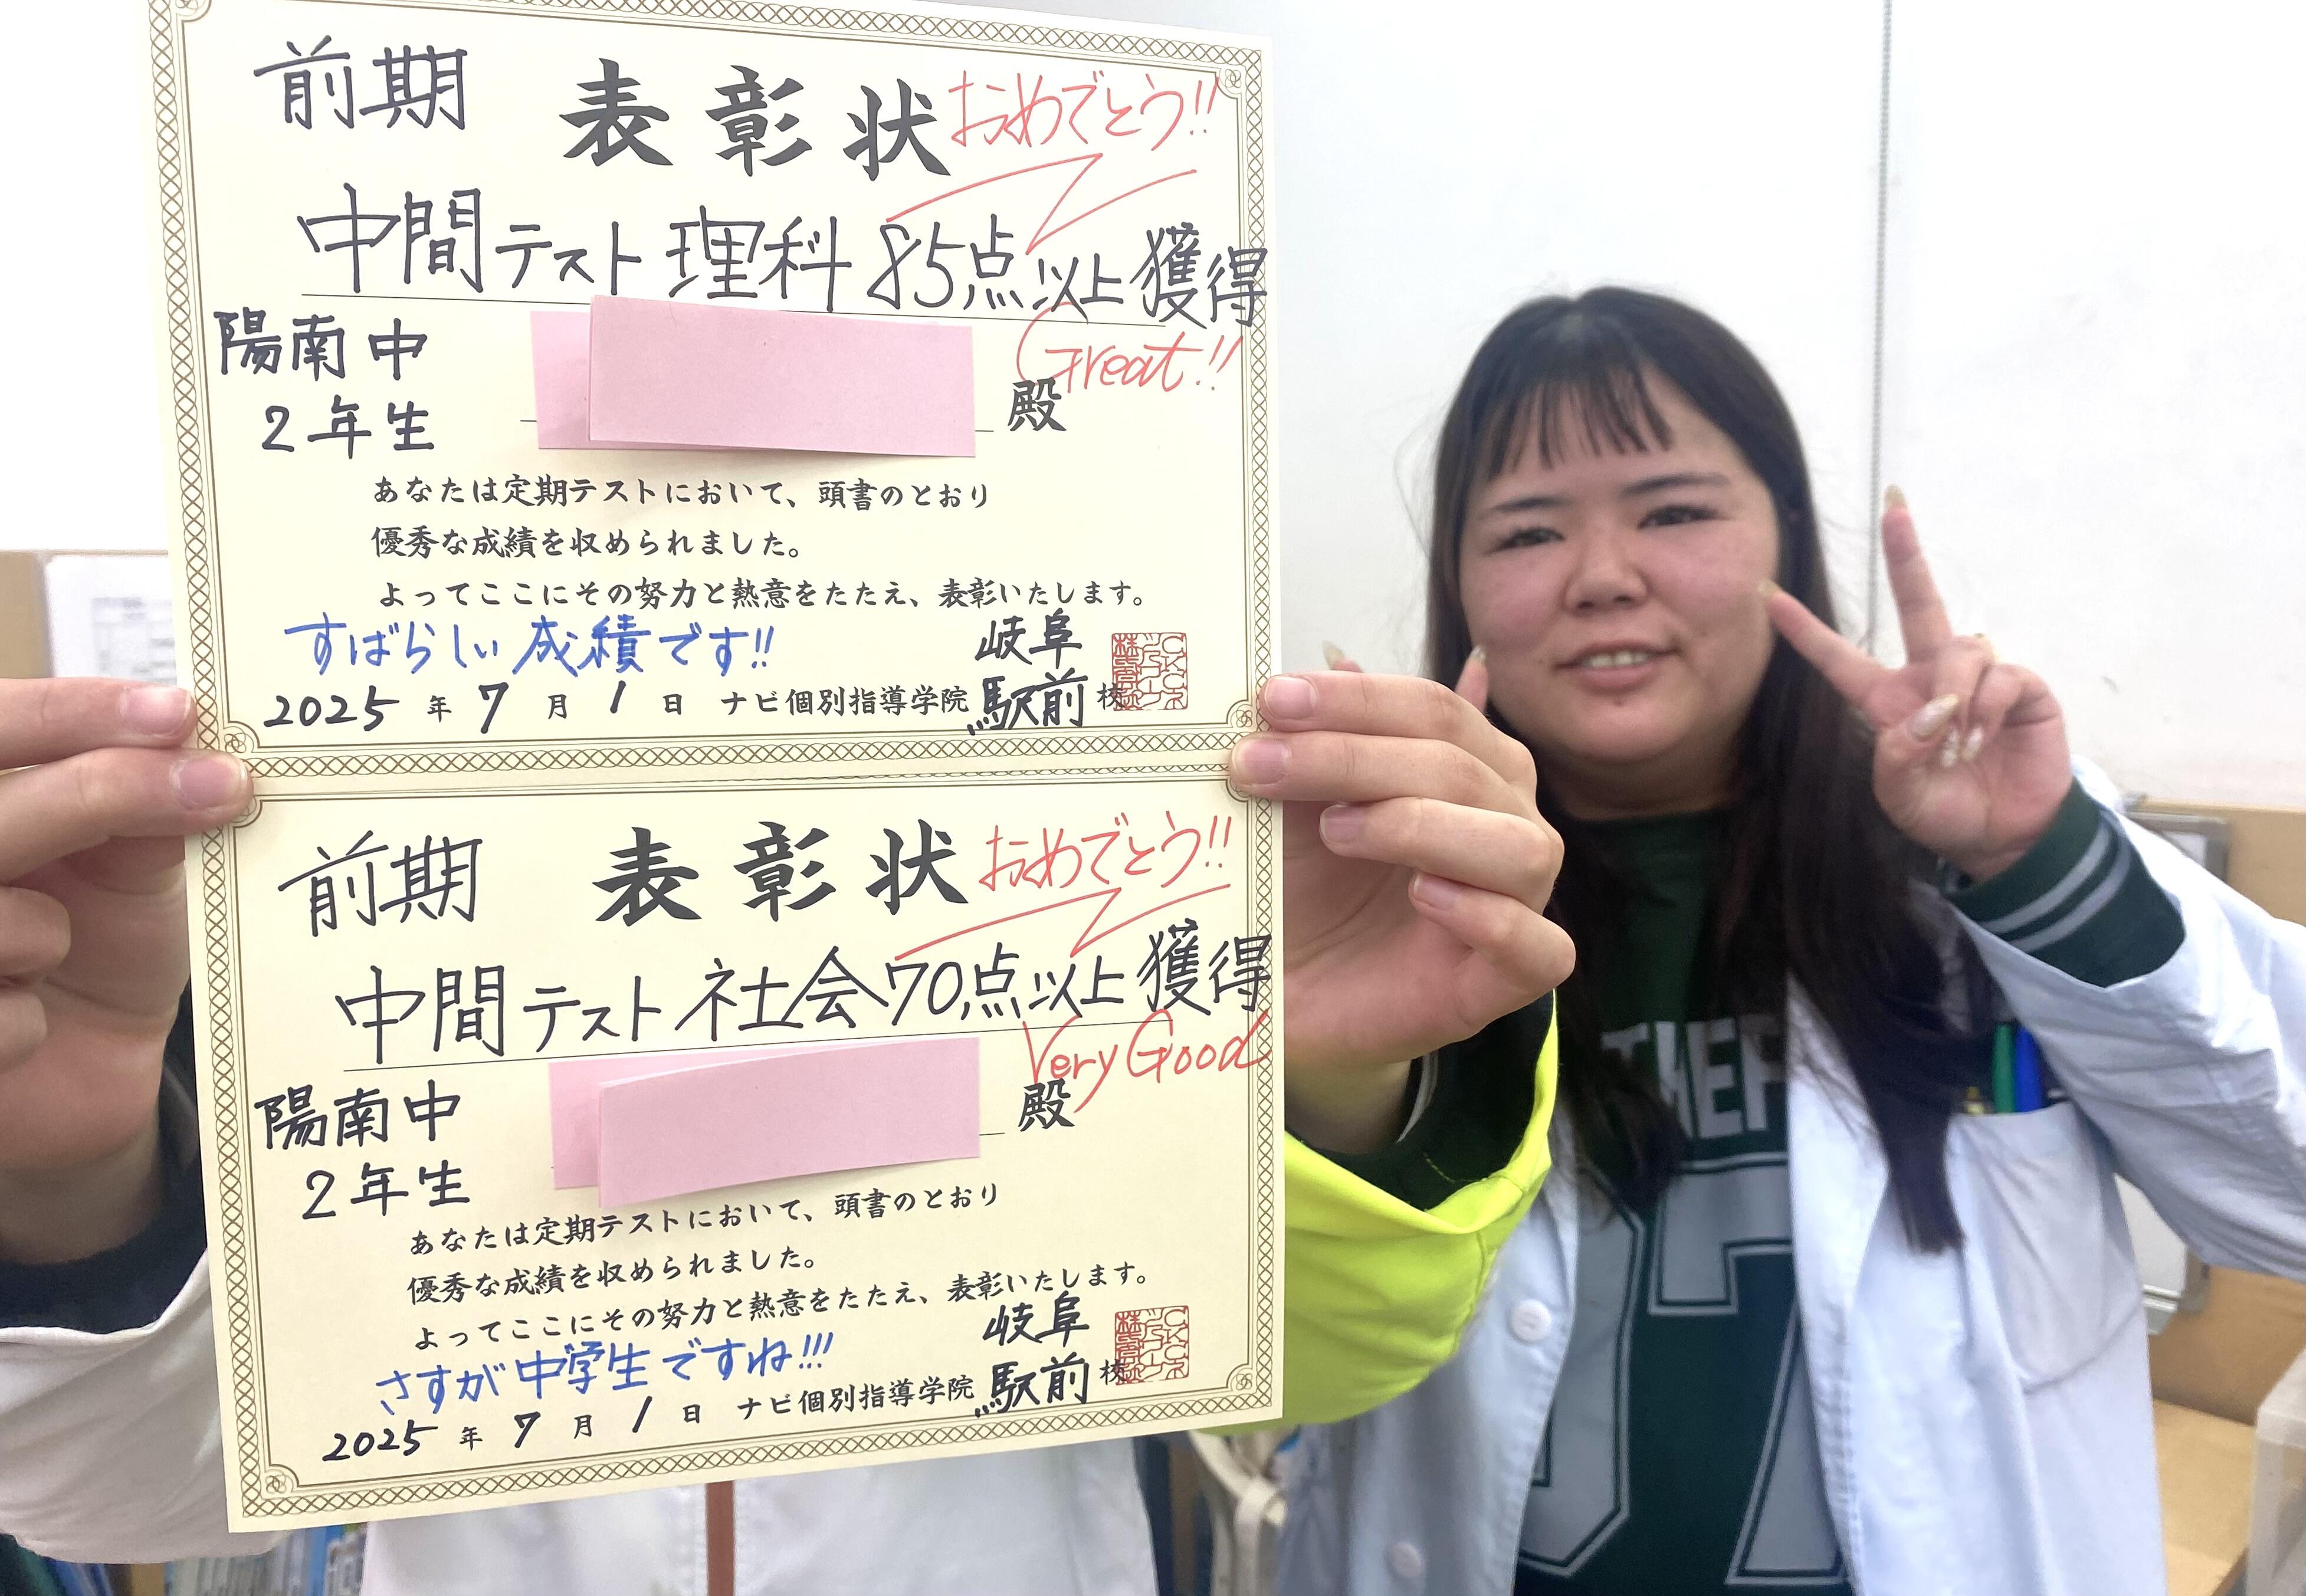 前期 表彰状 おめでとう!!
中間テスト 理科 85点以上獲得
Great!!
陽南中
2年生
殿
あなたは定期テストにおいて、頭書のとおり
優秀な成績を収められました。
よってここにその努力と熱意をたたえ、表彰いたします。
すばらしい成績です!!
岐阜
2025年7月1日 ナビ個別指導学院 駅前校
前期 表彰状 おめでとう!!
中間テスト 社会 70点以上獲得
Very Good
陽南中
2年生
殿
あなたは定期テストにおいて、頭書のとおり
優秀な成績を収められました。
よってここにその努力と熱意をたたえ、表彰いたします。
さすが中学生ですね!!!
岐阜
2025年7月1日 ナビ個別指導学院 駅前校